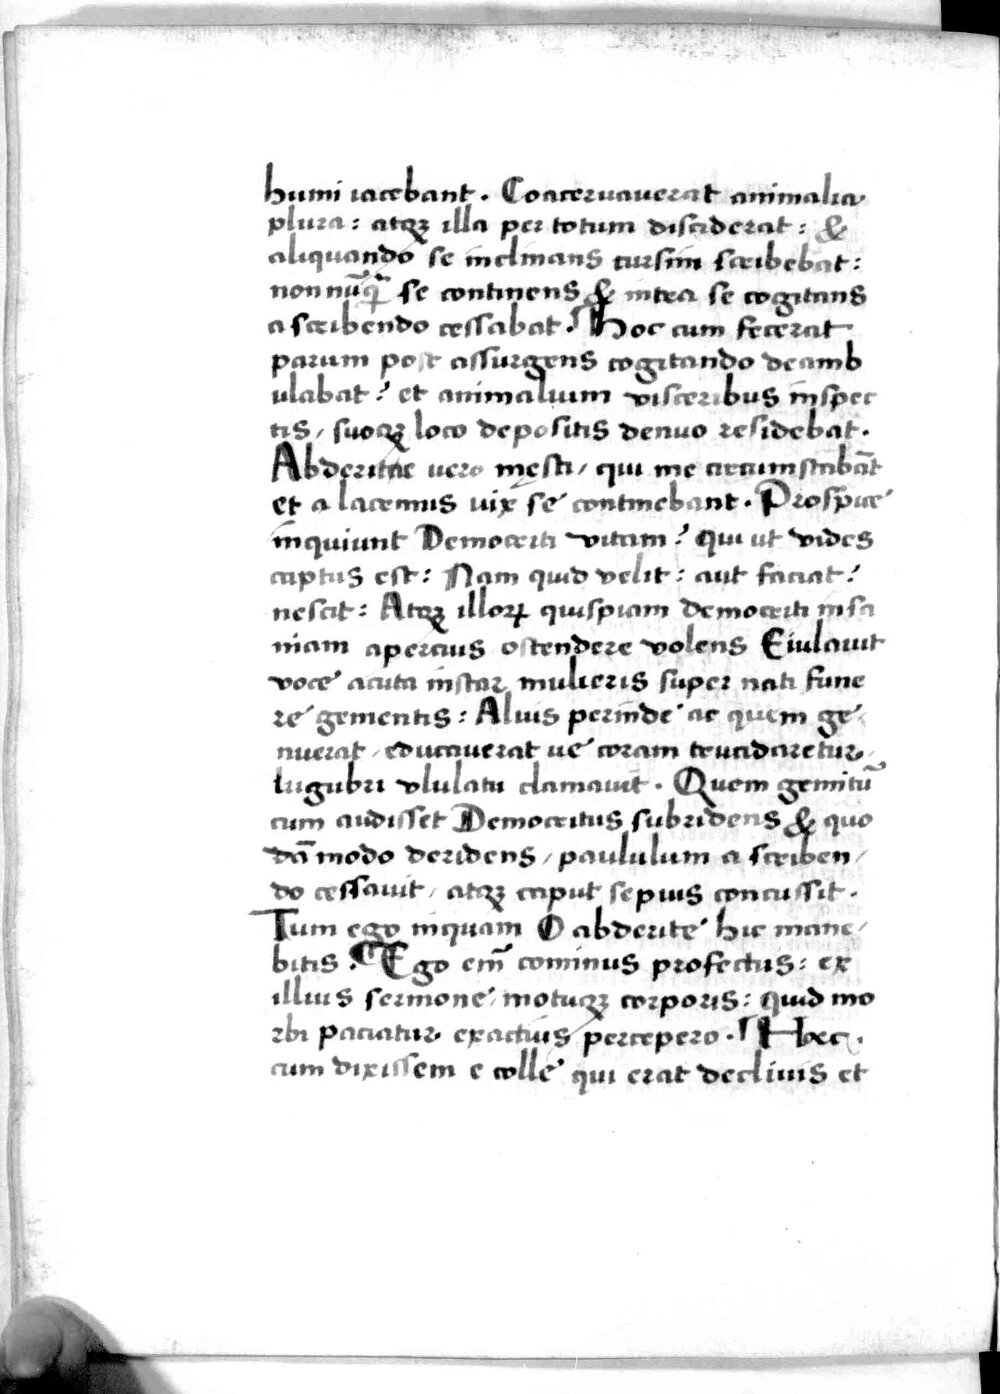 humi iacebant. Coaceruauerat animalia
plura: atqꝫ illa per totum disciderat: &
aliquando se inclinans cursim scribebat:
non nūq̄ se continens & intra se cogitans
a scribendo cessabat. Hoc cum fecerat
parum post assurgens cogitando deamb
ulabat: et animalium visceribus inspec
tis, suoqꝫ loco depositis denuo residebat.
Abderitae uero mesti, qui me circumstabāt
et a lacrimis uix se continebant. Prospice
inquiunt Democriti vitam: qui ut vides
captus est: Nam quid velit: aut faciat:
nescit: Atqꝫ illoꝝ quispiam democriti insa
niam apercius ostendere volens Eiulauit
voce acuta instar mulieris super nati fune
re gementis: Aluis perinde ac quem ge,
nuerat, educauerat ue coram trucidaretur,
lugubri vlulatu clamauit. Quem gemitū
cum audisset Democritus subridens & quo
dā modo deridens, paululum a scriben,
do cessauit, atqꝫ caput sepius concussit.
Tum ego inquam O abderite hic mane,
bitis. Ego em̄ cominus profectus: ex
illius sermone, motuqꝫ corporis: quid mo
rbi paciatur exactius percepero. Hec.
cum dixissem e colle qui erat decliuis et